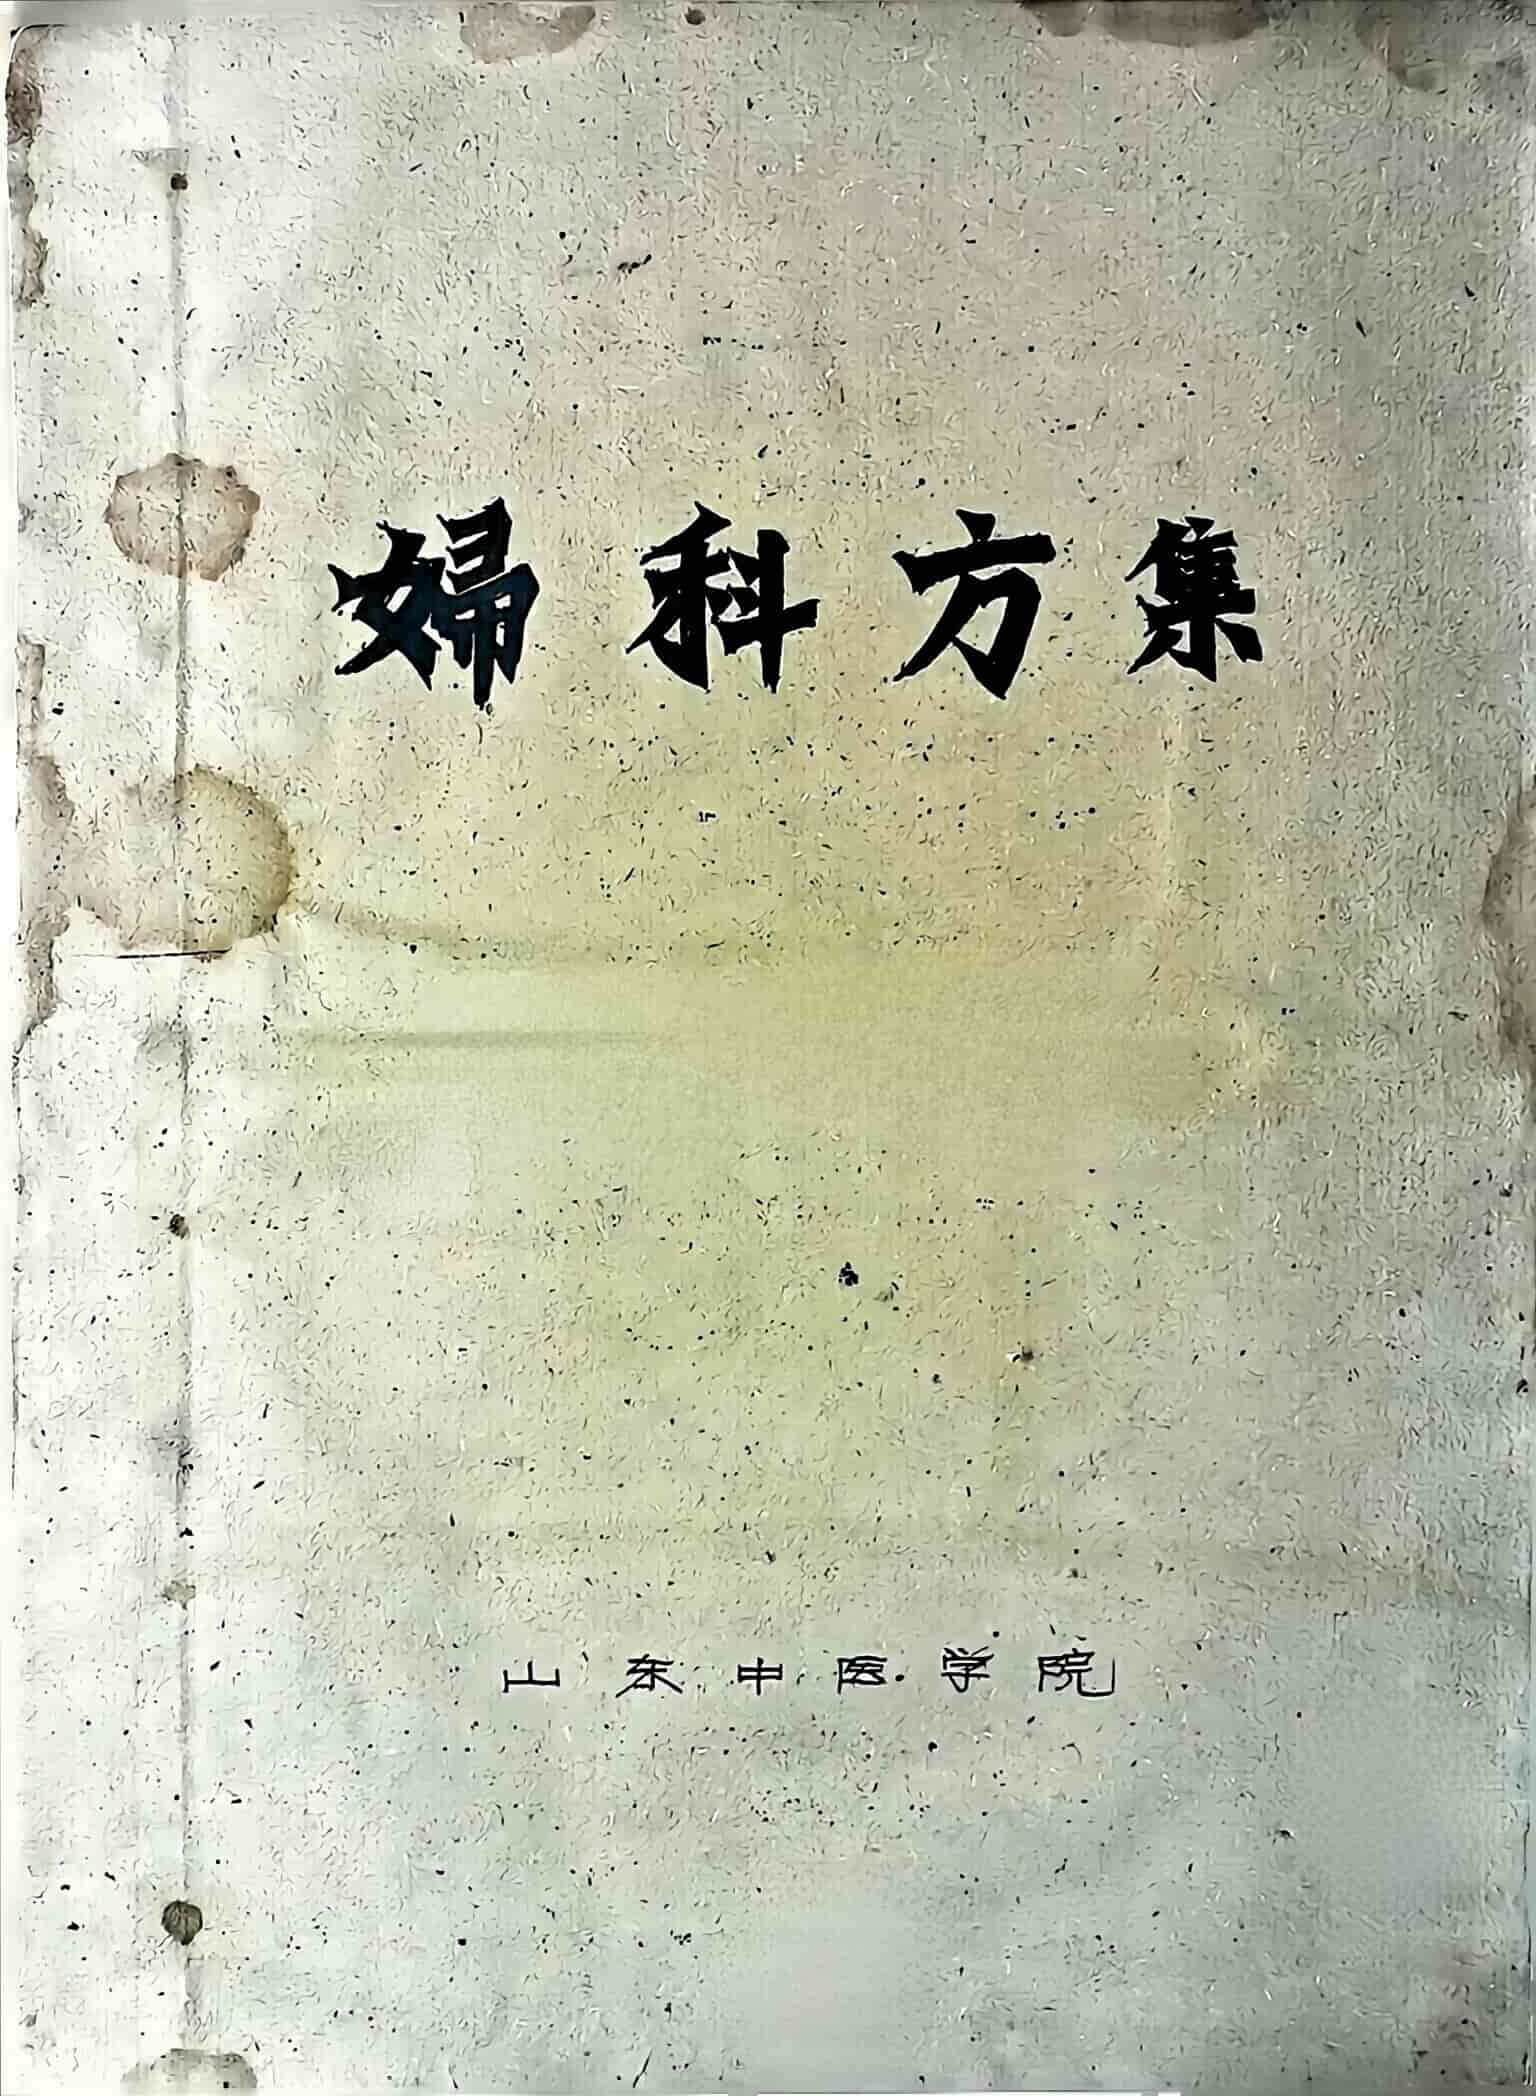 婦科方集
山东中医学院